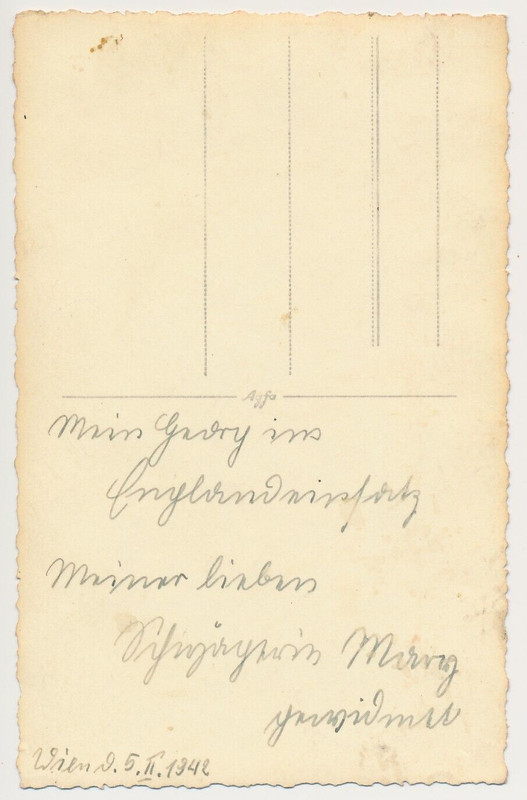 Agfa
Mein Georg im
Englandeinsatz
Meiner lieben
Schwägerin Mary
gewidmet
Wien d. 5. II. 1942